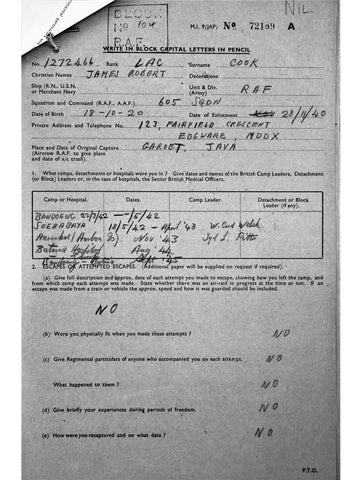 BLOCK
No 104
R.A.F.
NIL.
M.I. 9/JAP/ No 72169 A
WRITE IN BLOCK CAPITAL LETTERS IN PENCIL
No. 1272466 Rank LAC Surname COOK
Christian Names JAMES ROBERT Decorations
Ship (R.N., U.S.N. or Merchant Navy) Unit & Div. (Army) RAF
Squadron and Command (R.A.F., A.A.F.) 605 SQDN
Date of Birth 18-10-20 Date of Enlistment NOV 28/11/40
Private Address and Telephone No. 123, FAIRFIELD CRESCENT
EDGWARE, MDDX
Place and Date of Original Capture GAROET, JAVA
(Aircrew R.A.F. to give place
and date of a/c crash).
1. What camps, detachments or hospitals were you in? Give dates and names of the British Camp Leaders, Detachment
(or Block) Leaders or, in case of hospitals, the Senior British Medical Officers.
Camp or Hospital. Dates. Camp Leader. Detachment or Block Leader (if any).
BANDOENG 22/3/42 — /5/42
SOERABAYA 18/5/42 - April '43 W. Cmd Welch
Nov '43 Pitts
Batavia Aug '44
Sept '45
2. ESCAPES OR ATTEMPTED ESCAPES. (Additional paper will be supplied on request if required).
(a) Give full description and approx. date of each attempt you made to escape, showing how you left the camp, and
from which camp each attempt was made. State whether there was an air-raid in progress at the time or not. If an
escape was made from a train or vehicle the approx. speed and how it was guarded should be included.
NO
(b) Were you physically fit when you made these attempts? NO
(c) Give Regimental particulars of anyone who accompanied you on each attempt. NO
What happened to them? NO
(d) Give briefly your experiences during periods of freedom. NO
(e) How were you recaptured and on what date? NO
P.T.O.